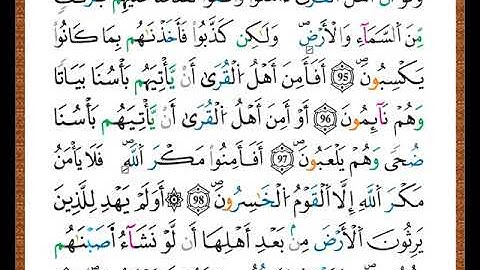 مِّنَ ٱلسَّمَآءِ وَٱلْأَرْضِ وَلَٰكِن كَذَّبُوا۟ فَأَخَذْنَٰهُم بِمَا كَانُوا۟
يَكْسِبُونَ 95 أَفَأَمِنَ أَهْلُ ٱلْقُرَىٰٓ أَن يَأْتِيَهُم بَأْسُنَا بَيَٰتًا
وَهُمْ نَآئِمُونَ 96 أَوَ أَمِنَ أَهْلُ ٱلْقُرَىٰٓ أَن يَأْتِيَهُم بَأْسُنَا
ضُحًى وَهُمْ يَلْعَبُونَ 97 أَفَأَمِنُوا۟ مَكْرَ ٱللَّهِ فَلَا يَأْمَنُ
مَكْرَ ٱللَّهِ إِلَّا ٱلْقَوْمُ ٱلْخَٰسِرُونَ 98 ۞ أَوَلَمْ يَهْدِ لِلَّذِينَ
يَرِثُونَ ٱلْأَرْضَ مِنۢ بَعْدِ أَهْلِهَآ أَن لَّوْ نَشَآءُ أَصَبْنَٰهُم